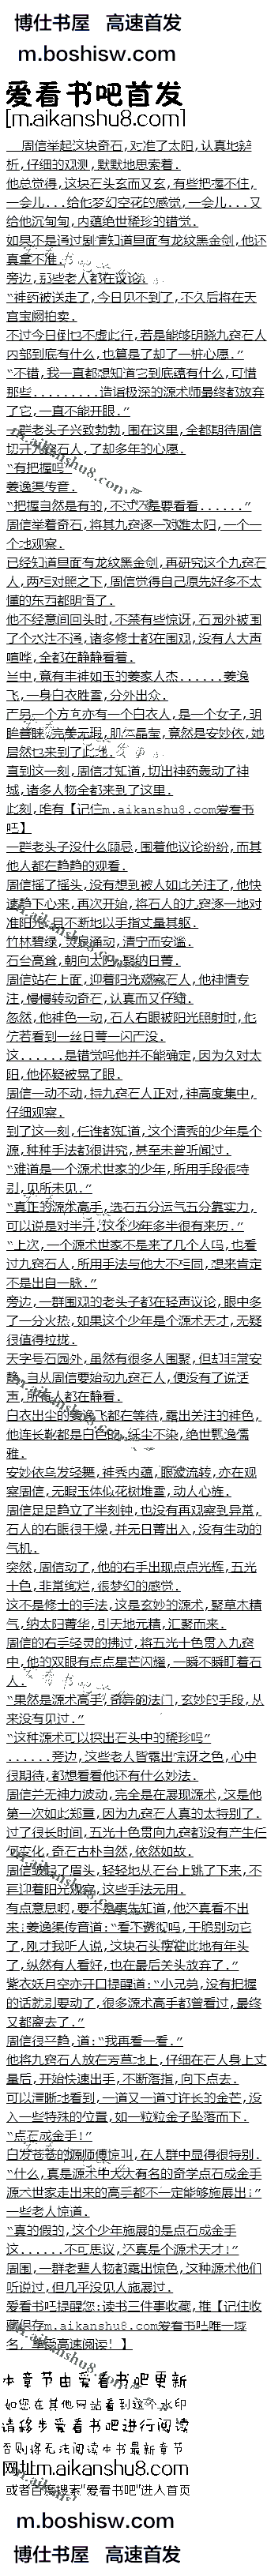 博仕书屋 高速首发
m.boshisw.com
爱看书吧首发
[m.aikanshu8.com]
周信举起这块奇石,对准了太阳,认真地辨
析,仔细的观测,默默地思索着.
他总觉得,这块石头玄而又玄,有些把握不住,
一会儿...给他梦幻空花的感觉,一会儿...又
给他沉甸甸,内蕴绝世稀珍的错觉.
如果不是通过剧情知道里面有龙纹黑金剑,他还
真拿不准.
旁边,那些老人都在议论.
“神药被送走了,今日见不到了,不久后将在天
宫宝阙拍卖.
不过今日倒也不虚此行,若是能够明晓九窍石人
内部到底有什么,也算是了却了一桩心愿.”
“不错,我一直都想知道它到底蕴有什么,可惜
那些.........造诣极深的源术师最终都放弃
了它,一直不能开眼.”
一群老头子兴致勃勃,围在这里,全都期待周信
切开九窍石人,了却多年的心愿.
“有把握吗”
姜逸渠传音.
“把握当然是有的,不过还是要看看......”
周信举着奇石,将其九窍逐一对准太阳,一个一
个地观察.
已经知道里面有龙纹黑金剑,再研究这个九窍石
人,两相对照之下,周信觉得自己原先好多不太
懂的东西都明悟了.
他不经意间回头时,不禁有些惊讶,石园外被围
了个水泄不通,诸多修士都在围观,没有人大声
喧哗,全都在静静看着.
当中,竟有丰神如玉的姜家人杰......姜逸
飞,一身白衣胜雪,分外出众.
在另一个方向亦有一个白衣人,是一个女子,明
眸善睐,完美无瑕,肌体晶莹,竟然是安妙依,她
居然也来到了此地.
直到这一刻,周信才知道,切出神药轰动了神
城,诸多人物全都来到了这里.
此刻,唯有【记住m.aikanshu8.com爱看书
吧】
一群老头子没什么顾忌,围着他议论纷纷,而其
他人都在静静的观看.
周信摇了摇头,没有想到被人如此关注了,他快
速静下心来,再次开始,将石人的九窍逐一地对
准阳光,且不断地以手指丈量其躯.
竹林碧绿,灵泉涌动,清宁而安谧.
石台高耸,朝向太阳,聚纳日菁.
周信站在上面,迎着阳光观察石人,他神情专
注,慢慢转动奇石,认真而又仔细.
忽然,他神色一动,石人右眼被阳光照射时,他
仿若看到一丝日菁一闪而没.
这......是错觉吗他并不能确定,因为久对太
阳,他怀疑被晃了眼.
周信一动不动,持九窍石人正对,神高度集中,
仔细观察.
到了这一刻,任谁都知道,这个清秀的少年是个
源,种种手法都很讲究,甚至未曾听闻过.
“难道是一个源术世家的少年,所用手段很特
别,见所未见.”
“真正的源术高手,选石五分运气五分靠实力,
可以说是对半开,这个少年多半很有来历.”
“上次,一个源术世家不是来了几个人吗,也看
过九窍石人,所用手法与他大不相同,想来肯定
不是出自一脉.”
旁边,一群围观的老头子都在轻声议论,眼中多
了一分火热,如果这个少年是个源术天才,无疑
很值得拉拢.
天字号石园外,虽然有很多人围聚,但却非常安
静,自从周信要始动九窍石人,便没有了说话
声,所有人都在静看.
白衣出尘的姜逸飞都在等待,露出关注的神色,
他连长靴都是白色的,纤尘不染,绝世飘逸儒
雅.
安妙依乌发轻舞,神秀内蕴,眼波流转,亦在观
察周信,无暇玉体似花树堆雪,动人心旌.
周信足足静立了半刻钟,也没有再观察到异常,
石人的右眼很干燥,并无日菁出入,没有生动的
气机.
突然,周信动了,他的右手出现点点光辉,五光
十色,非常绚烂,很梦幻的感觉.
这不是修士的手法,这是玄妙的源术,聚草木精
气,纳太阳菁华,引天地元精,汇聚而来.
周信的右手轻灵的拂过,将五光十色贯入九窍
中,他的双眼有点点星芒闪耀,一瞬不瞬盯着石
人.
“果然是源术高手,奇异的法门,玄妙的手段,从
来没有见过.”
“这种源术可以探出石头中的稀珍吗”
......旁边,这些老人皆露出惊讶之色,心中
很期待,都想看看他还有什么妙法.
周信并无神力波动,完全是在展现源术,这是他
第一次如此郑重,因为九窍石人真的太特别了.
过了很长时间,五光十色贯向九窍都没有产生任
何变化,奇石古朴自然,依然如故.
周信皱起了眉头,轻轻地从石台上跳了下来,不
再迎着阳光观察,这些手法无用.
有点意思啊,要不是事先知道,他还真看不出
来;姜逸渠传音道:“看不透彻吗,干脆别动它
了,刚才我听人说,这块石头摆在此地有年头
了,纵然有人看好,也在最后关头放弃了.”
紫衣妖月空亦开口提醒道:“小兄弟,没有把握
的话就别要动了,很多源术高手都曾看过,最终
又都离去了.”
周信很平静,道:“我再看一看.”
他将九窍石人放在芳草地上,仔细在石人身上丈
量后,开始快速出手,不断落指,向下点去.
可以清晰地看到,一道又一道寸许长的金芒,没
入一些特殊的位置,如一粒粒金子坠落而下.
“点石成金手!”
白发苍苍的源师傅惊叫,在人群中显得很特别.
“什么,真是源术中大大有名的奇学点石成金手
源术世家走出来的高手都不一定能够施展出!”
一些老人惊道.
“真的假的,这个少年施展的是点石成金手
这......不可思议,还真是个源术天才!”
周围,一群老辈人物都露出惊色,这种源术他们
听说过,但几乎没见人施展过.
爱看书吧提醒您:读书三件事收藏,推【记住收
藏保存m.aikanshu8.com爱看书吧唯一域
名,享受高速阅读!】
本章节由爱看书吧更新
如您在其他网站看到这个水印
请移步爱看书吧进行阅读
否则将无法阅读本书最新章节
网址m.aikanshu8.com
或者百度搜索"爱看书吧"进入首页
m.boshisw.com
博仕书屋 高速首发